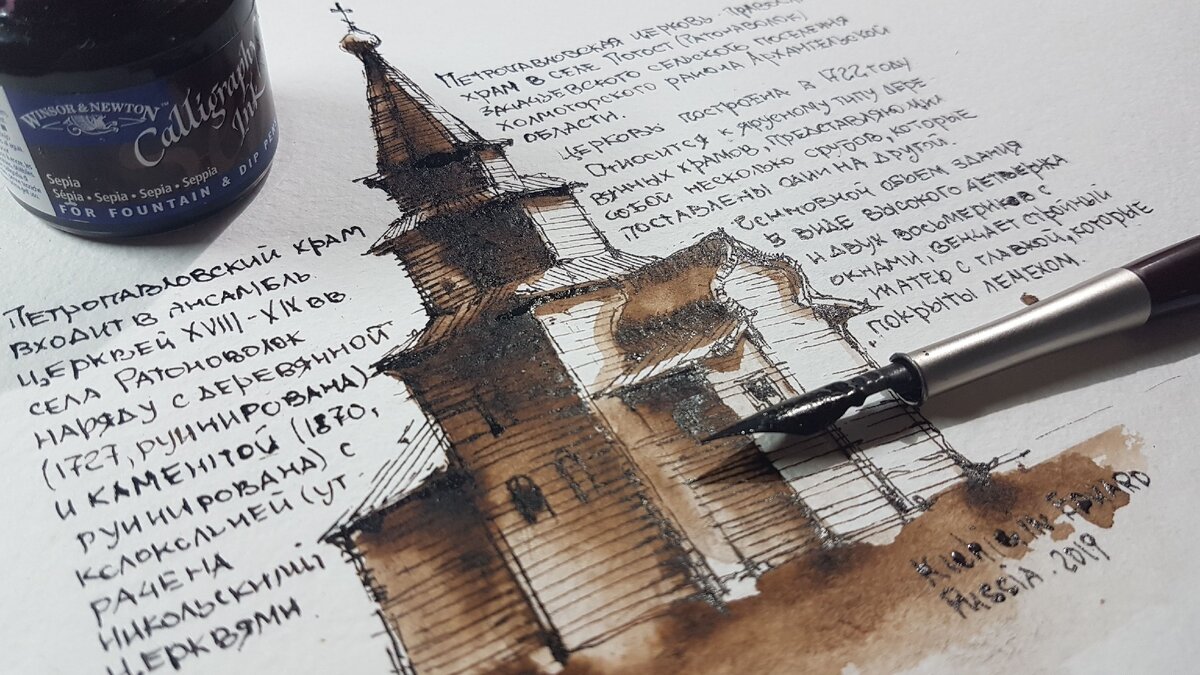 WINSOR & NEWTON™
Calligraphy
Ink
Sepia
Sépia • Sepia • Sepia • Seppia
FOR FOUNTAIN & DIP PE
ПЕТРОПАВЛОВСКАЯ ЦЕРКОВЬ -
ХРАМ В СЕЛЕ ПОГОСТ (РАТОНАВОЛОК)
ЗАЧАЧЬЕВСКОГО СЕЛЬСКОГО ПОСЕЛЕНИЯ
ХОЛМОГОРСКОГО РАЙОНА АРХАНГЕЛЬСКОЙ
ОБЛАСТИ.
ЦЕРКОВЬ ПОСТРОЕНА В 1722 ГОДУ
ОТНОСИТСЯ К ЯРУСНОМУ ТИПУ ДЕРЕ
ВЯННЫХ ХРАМОВ, ПРЕДСТАВЛЯЮЩИХ
СОБОЙ НЕСКОЛЬКО СРУБОВ, КОТОРЫЕ
ПОСТАВЛЕНЫ ОДИН НА ДРУГОЙ.
ОСНОВНОЙ ОБЪЕМ ЗДАНИЯ
В ВИДЕ ВЫСОКОГО ЧЕТВЕРИКА
И ДВУХ ВОСЬМЕРИКОВ С
ОКНАМИ, ВЕНЧАЕТ СТРОЙНЫЙ
ШАТЕР С ГЛАВКОЙ, КОТОРЫЕ
ПОКРЫТЫ ЛЕМЕХОМ.
ПЕТРОПАВЛОВСКИЙ ХРАМ
ВХОДИТ В АНСАМБЛЬ
ЦЕРКВЕЙ XVIII-XIX ВВ
СЕЛА РАТОНОВОЛОК
НАРЯДУ С ДЕРЕВЯННОЙ
(1727, РУИНИРОВАНА)
И КАМЕННОЙ (1870,
РУИНИРОВАНА) С
КОЛОКОЛЬНЕЙ (УТ-
РАЧЕНА
НИКОЛЬСКИМИ
ЦЕРКВЯМИ
KICHIGIN EDUARD
RUSSIA . 2019